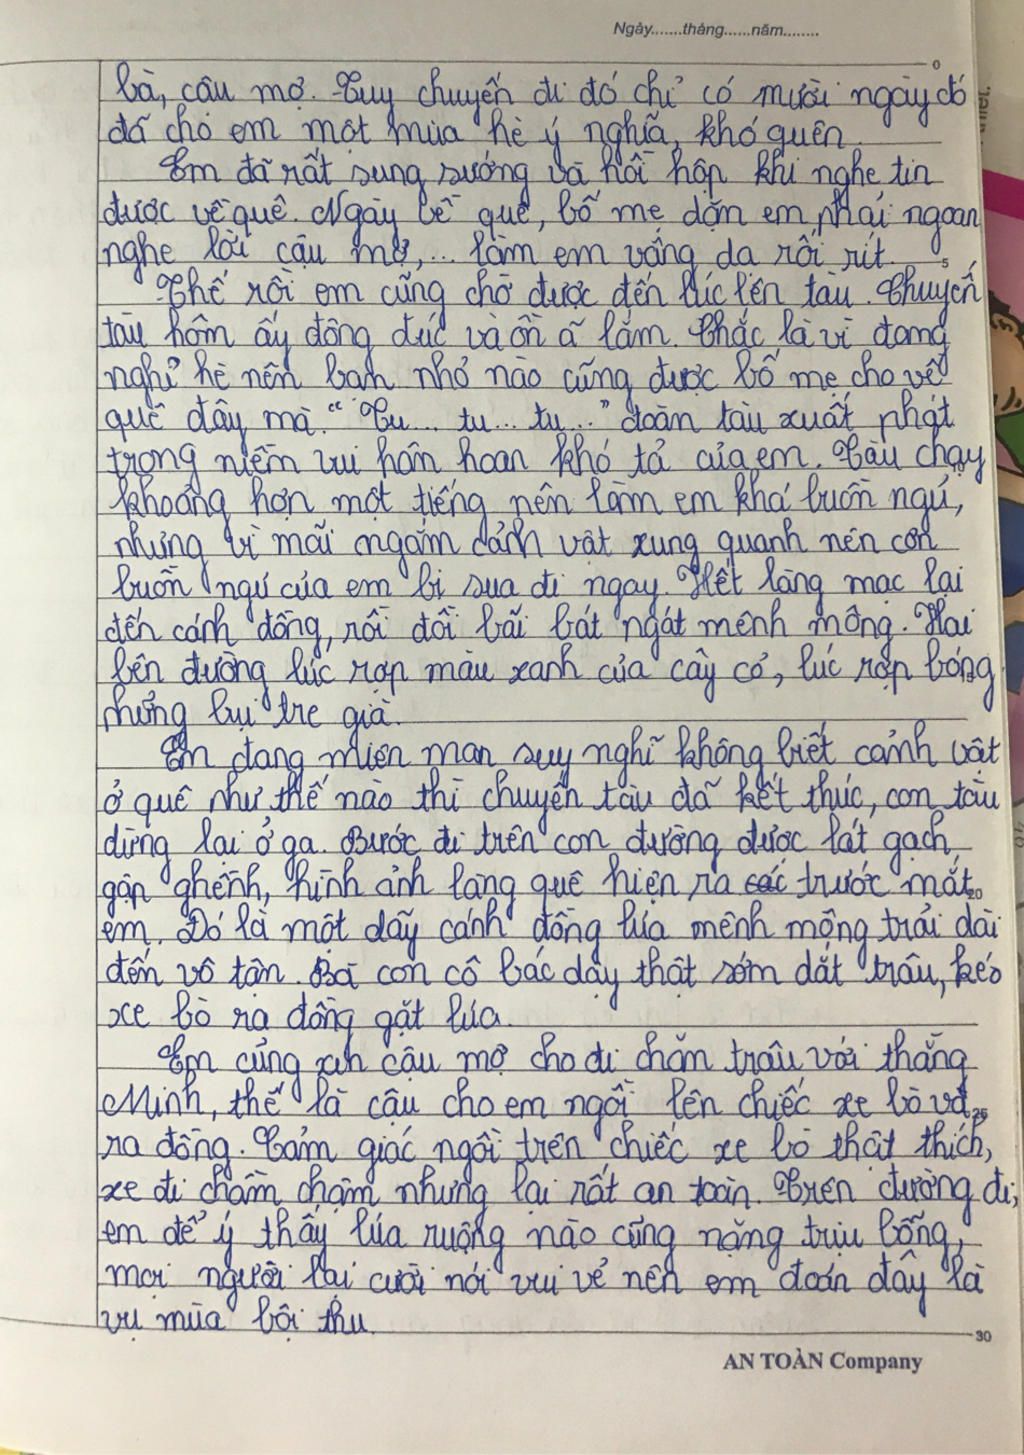 Ngày.......tháng......năm........
0
bà, cậu mợ. Tuy chuyến đi đó chỉ có mười ngày đó
đã cho em một mùa hè ý nghĩa, khó quên.
Em đã rất sung sướng và hồi hộp khi nghe tin
được về quê. Ngày về quê, bố mẹ dặn em, phải ngoan
nghe lời cậu mợ,... làm em vâng dạ rối rít.
5
Thế rồi em cũng chờ được đến lúc lên tàu. Chuyến
tàu hôm ấy đông đúc và ồn ã lắm. Chắc là vì đang
nghỉ hè nên bạn nhỏ nào cũng được bố mẹ cho về
quê đây mà. "Tu... tu... tu..." đoàn tàu xuất phát
trong niềm vui hân hoan khó tả của em. Tàu chạy
khoảng hơn một tiếng nên làm em khá buồn ngủ,
nhưng vì mải ngắm cảnh vật xung quanh nên cơn
buồn ngủ của em bị xua đi ngay. Hết làng mạc lại
đến cánh đồng, rồi đồi bãi bát ngát mênh mông. Hai
bên đường lúc rợp màu xanh của cây cỏ, lúc rợp bóng
những bụi tre già.
Em đang miên man suy nghĩ không biết cảnh vật
ở quê như thế nào thì chuyến tàu đã kết thúc, con tàu
dừng lại ở ga. Bước đi trên con đường được lát gạch
gập ghềnh, hình ảnh làng quê hiện ra các trước mắt
20
em. Đó là một dãy cánh đồng lúa mênh mông trải dài
đến vô tận. Bà con cô bác dậy thật sớm dắt trâu, kéo
xe bò ra đồng gặt lúa.
Em cũng xin cậu mợ cho đi chăn trâu với thằng
Minh, thế là cậu cho em ngồi lên chiếc xe bò và
25
ra đồng. Cảm giác ngồi trên chiếc xe bò thật thích,
xe đi chầm chậm nhưng lại rất an toàn. Trên đường đi,
em để ý thấy lúa ruộng nào cũng nặng trịu bông,
mọi người lại cười nói vui vẻ nên em đoán đây là
vụ mùa bội thu.
30
AN TOÀN Company